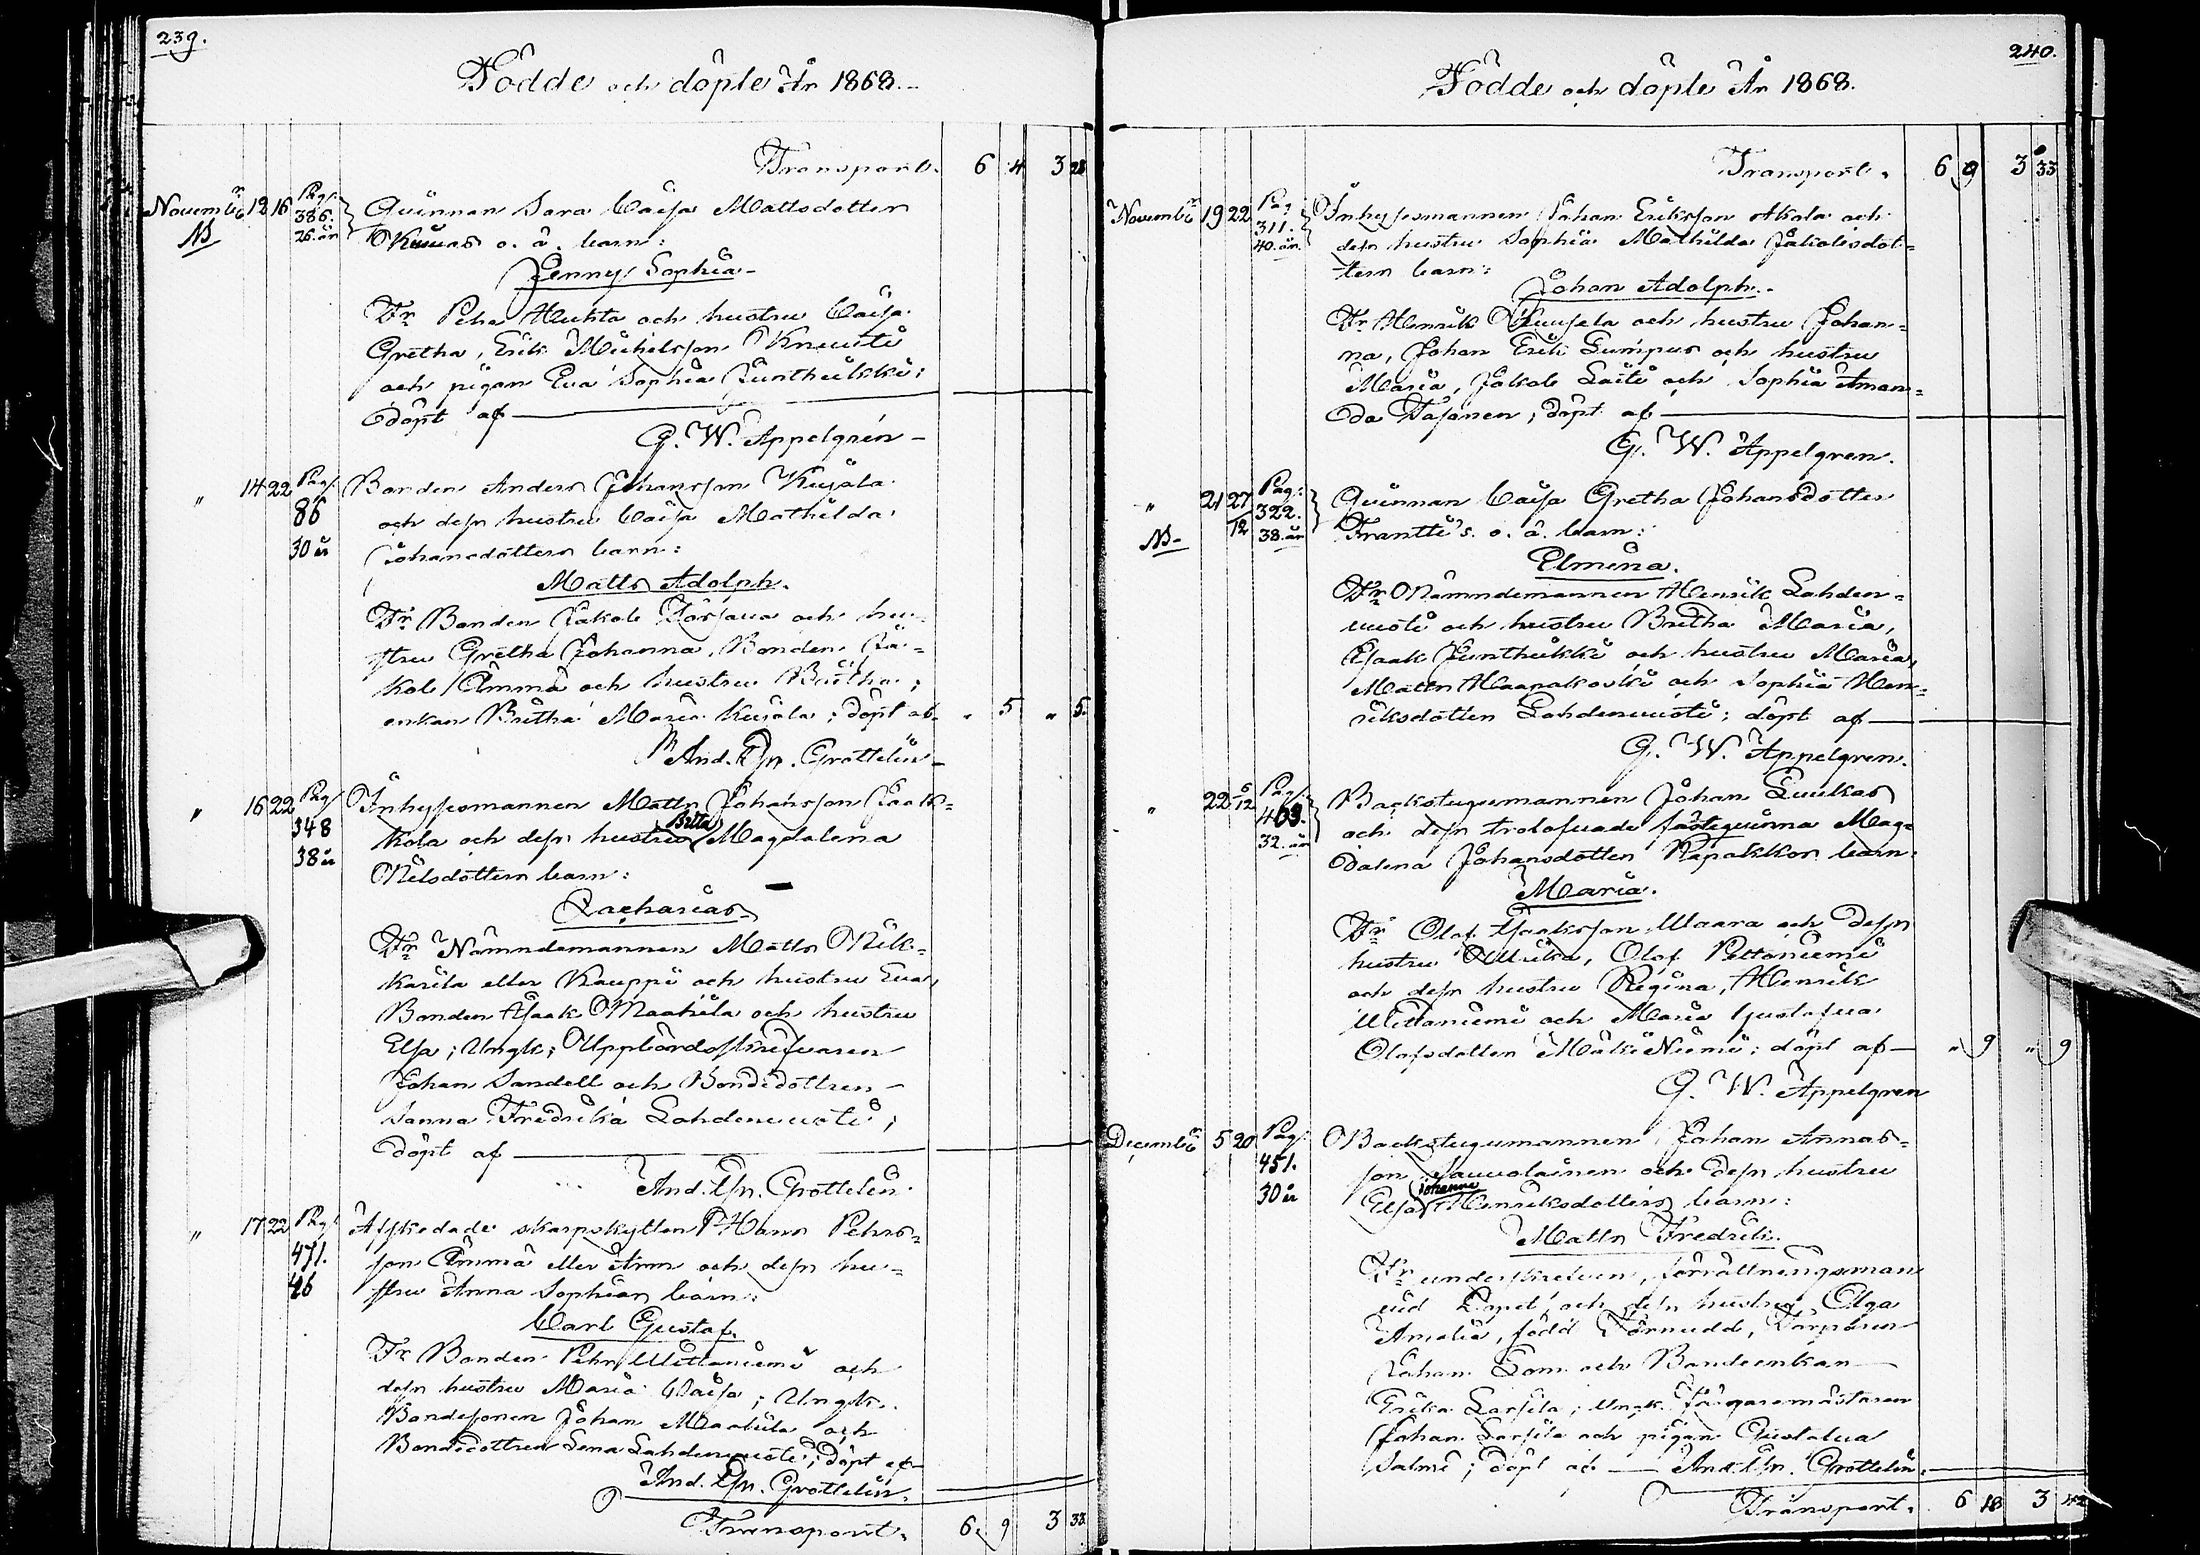 239.
Födde och döpte År 1868.
Transport. 6 4 3 28
Novemb. 12 16 Pag. 386. 26. år Qvinnan Sara Caisa Mattsdotter
NB o. ä. barn:
Jenny Sophia
Fr Pehr Huhta och hustru Caisa
Gretha, Erik Michelsson Knuuti
och pigan Eva Sophia Junthikki;
döpt af
G. W. Appelgren
" 14 22 Pag. 86 30 år Bonden Anders Johansson Kujala
och dess hustru Caisa Mathilda
Johansdotters barn:
Matts Adolph.
Fr Bonden Jakob och hu-
stru Gretha Johanna, Bonden Ja-
kob Ämmä och hustru Britha;
enkan Britha Maria Kujala; döpt af " 5 " 5.
And. Joh. Grottelin
" 16 22 Pag. 348 38 år Inhysesmannen Matts Johansson Jaak-
kola och dess hustru Brita Magdalena
Nilsdotters barn:
Zacharias
Fr Nämndemannen Matts Nik-
karila eller Kauppi och hustru Eva,
Bonden Isaak Maahila och hustru
Elsa; Ungk; Uppbördsskrifvaren
Johan Sandell och Bondedottren
Sanna Fredrika Lahdenvuoti;
döpt af
And. Joh. Grottelin
" 17 22 Pag. 471. 46 Afskedade skarpskytten Hans Pehrs-
son Ämmä eller Arm och dess hu-
stru Anna Sophias barn:
Carl Gustaf.
Fr Bonden Pehr Wittaniemi och
dess hustru Maria Caisa; Ungk.
Bondesonen Johan Maahila och
Bondedottren Lena Lahdenvuoti; döpt af
And. Joh. Grottelin.
Transport. 6 9 3 33
240.
Födde och döpte År 1868.
Transport. 6 9 3 33
Novemb. 19 22 Pag 311. 40. år Inhysesmannen Johan Eriksson Akola och
dess hustru Sophia Mathilda Jakobsdot-
ters barn:
Johan Adolph.
Fr Henrik och hustru Johan-
na, Johan Erik Lumpus och hustru
Maria, Jakob Laiti och Sophia Aman-
da Tasanen; döpt af
G. W. Appelgren.
" 21 27/12 Pag: 322. 38. år Qvinnan Caisa Gretha Johansdotter
NB Frantti's o. ä. barn:
Elmina.
Fr Nämndemannen Henrik Lahden-
vuoti och hustru Britha Maria,
Isaak Junthikki och hustru Maria,
Matts Haapakoski och Sophia Hen-
riksdotter Lahdenvuoti; döpt af
G. W. Appelgren.
" 22 5/12 Pag. 403. 32. år Backstugumannen Johan Luukas
och dess trolofvade fästeqvinna Mag-
dalena Johansdotter Räpakkos barn:
Maria.
Fr Olof Isaksson Waara och dess
hustru Ullrika, Olof Pettäniemi
och dess hustru Regina, Henrik
Wittaniemi och Maria Gustafva
Olofsdotter MäkiNiemi; döpt af " 9 " 9
G. W. Appelgren
Decemb. 5 20 Pag. 451. 30 år Backstugumannen Johan Annas-
son Sauvolainen och dess hustru
Elsa Johanna Henriksdotters barn:
Matts Fredrik.
Fr underskrefven, förrättningsman
vid Kapel och dess hustru Olga
Amalia, född Törnudd, Torparen
Johan Lom och Bondeenkan
Erika Larsila; Ungk. Färgaremästaren
Johan Larsila och pigan Gustafva
Salmi; döpt af And. Joh. Grottelin.
Transport. 6 18 3 42